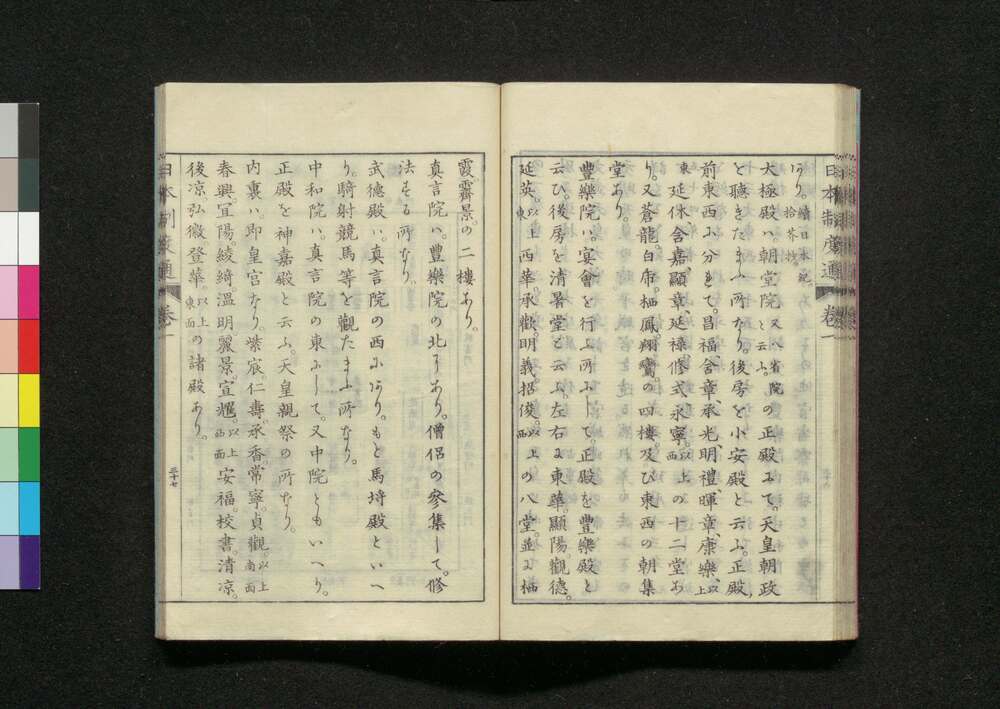 日本制度通 卷一
あり。續日本紀。拾芥抄。
大極殿ハ。朝堂院又八省院と云ふ。の正殿にて。天皇朝政
と聴きたまふ所なり。後房を小安殿と云ふ。正殿
前東西に分れて。昌福含章。承光。明禮。暉章。康樂。以上
東延休含嘉。顯章。延祿。修式永寧。以上西の十二堂あ
り。又蒼龍。白虎。栖鳳翔鸞の四樓。及び東西の朝集
堂あり。
豐樂院ハ。宴會を行ふ所にして。正殿を豐樂殿と
云ひ。後房を清暑堂と云ふ。左右に東華。顯陽。觀德。
延英。以上東西華。承歡。明義招俊。以上西の八堂。並に栖
霞霽景の二樓あり。
真言院ハ。豐樂院の北にあり。僧侶の參集して。修
法する所なり。
武德殿ハ。真言院の西にあり。もと馬埒殿といへ
り。騎射競馬等を觀たまふ所なり。
中和院ハ。真言院の東にして。又中院ともいへり。
正殿を神嘉殿と云ふ。天皇親祭の所なり。
内裏ハ。即皇宮なり。紫宸仁壽。承香。常寧。貞觀。以上南面
春興。宜陽。綾綺溫明。麗景。宣耀。以上西面安福。校書。清凉。
後凉。弘徽登華。以上東面の諸殿あり。
日本制度通 卷一
三十七